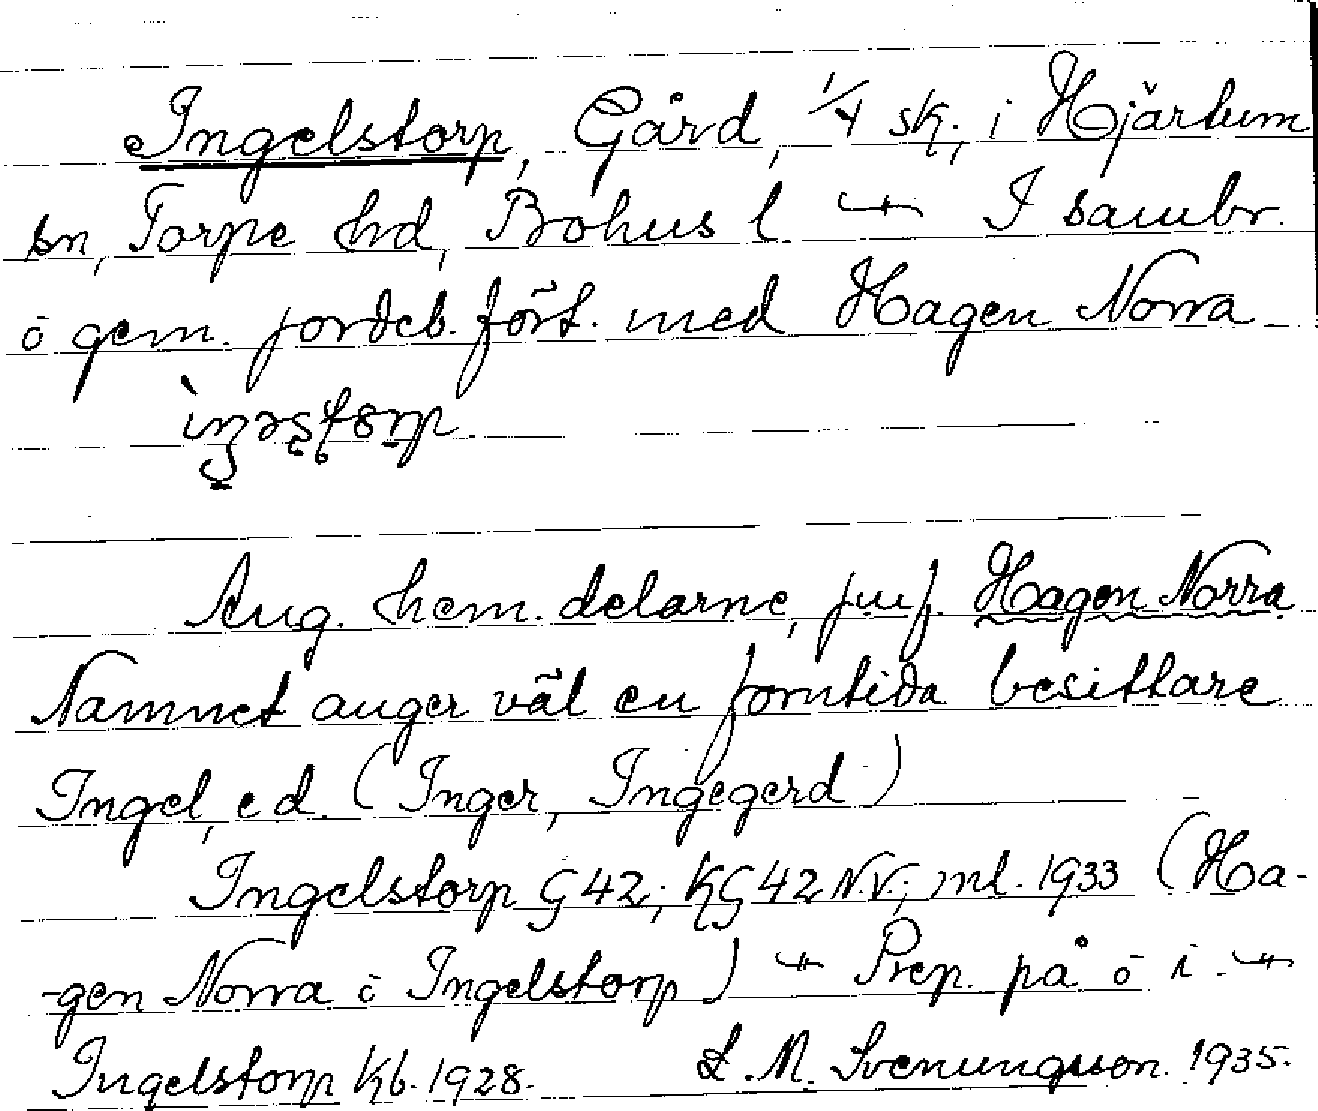 Ingelstorp, Gård, 1/4 sk., i Hjärtum
sn, Torpe hd, Bohus l. ⸺ I sambr.
ō gem. jordeb. fört. med Hagen Norra

Ang. hem. delarne, jmf. Hagen Norra
Namnet anger väl en forntida besittare
Ingel, e d. (Inger, Ingegerd)
Ingelstorp G 42; KG 42 N.V.; ml. 1933 (Ha-
-gen Norra ō Ingelstorp) ⸺ Prep. på ō i. ⸺
Ingelstorp Kb. 1928. L. M. Svenungsson. 1935.